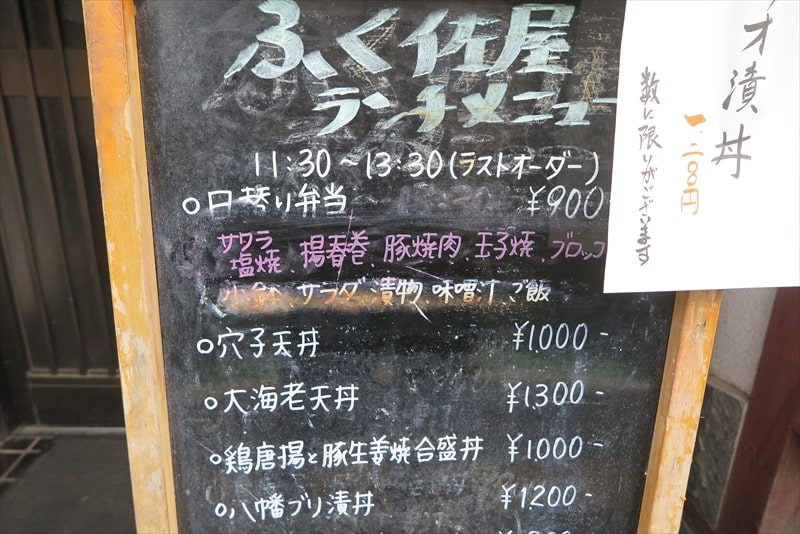 ふく佐屋
ランチメニュー
11:30～13:30(ラストオーダー)
○日替り弁当 ¥900
サワラ塩焼、揚春巻、豚焼肉、玉子焼、ブロッコ
小鉢、サラダ、漬物、味噌汁、ご飯
○穴子天丼 ¥1000-
○大海老天丼 ¥1300-
○鶏唐揚と豚生姜焼合盛丼 ¥1000-
○八幡ブリ漬丼 ¥1200-
オ漬丼
一、二〇〇円
数に限りがございます